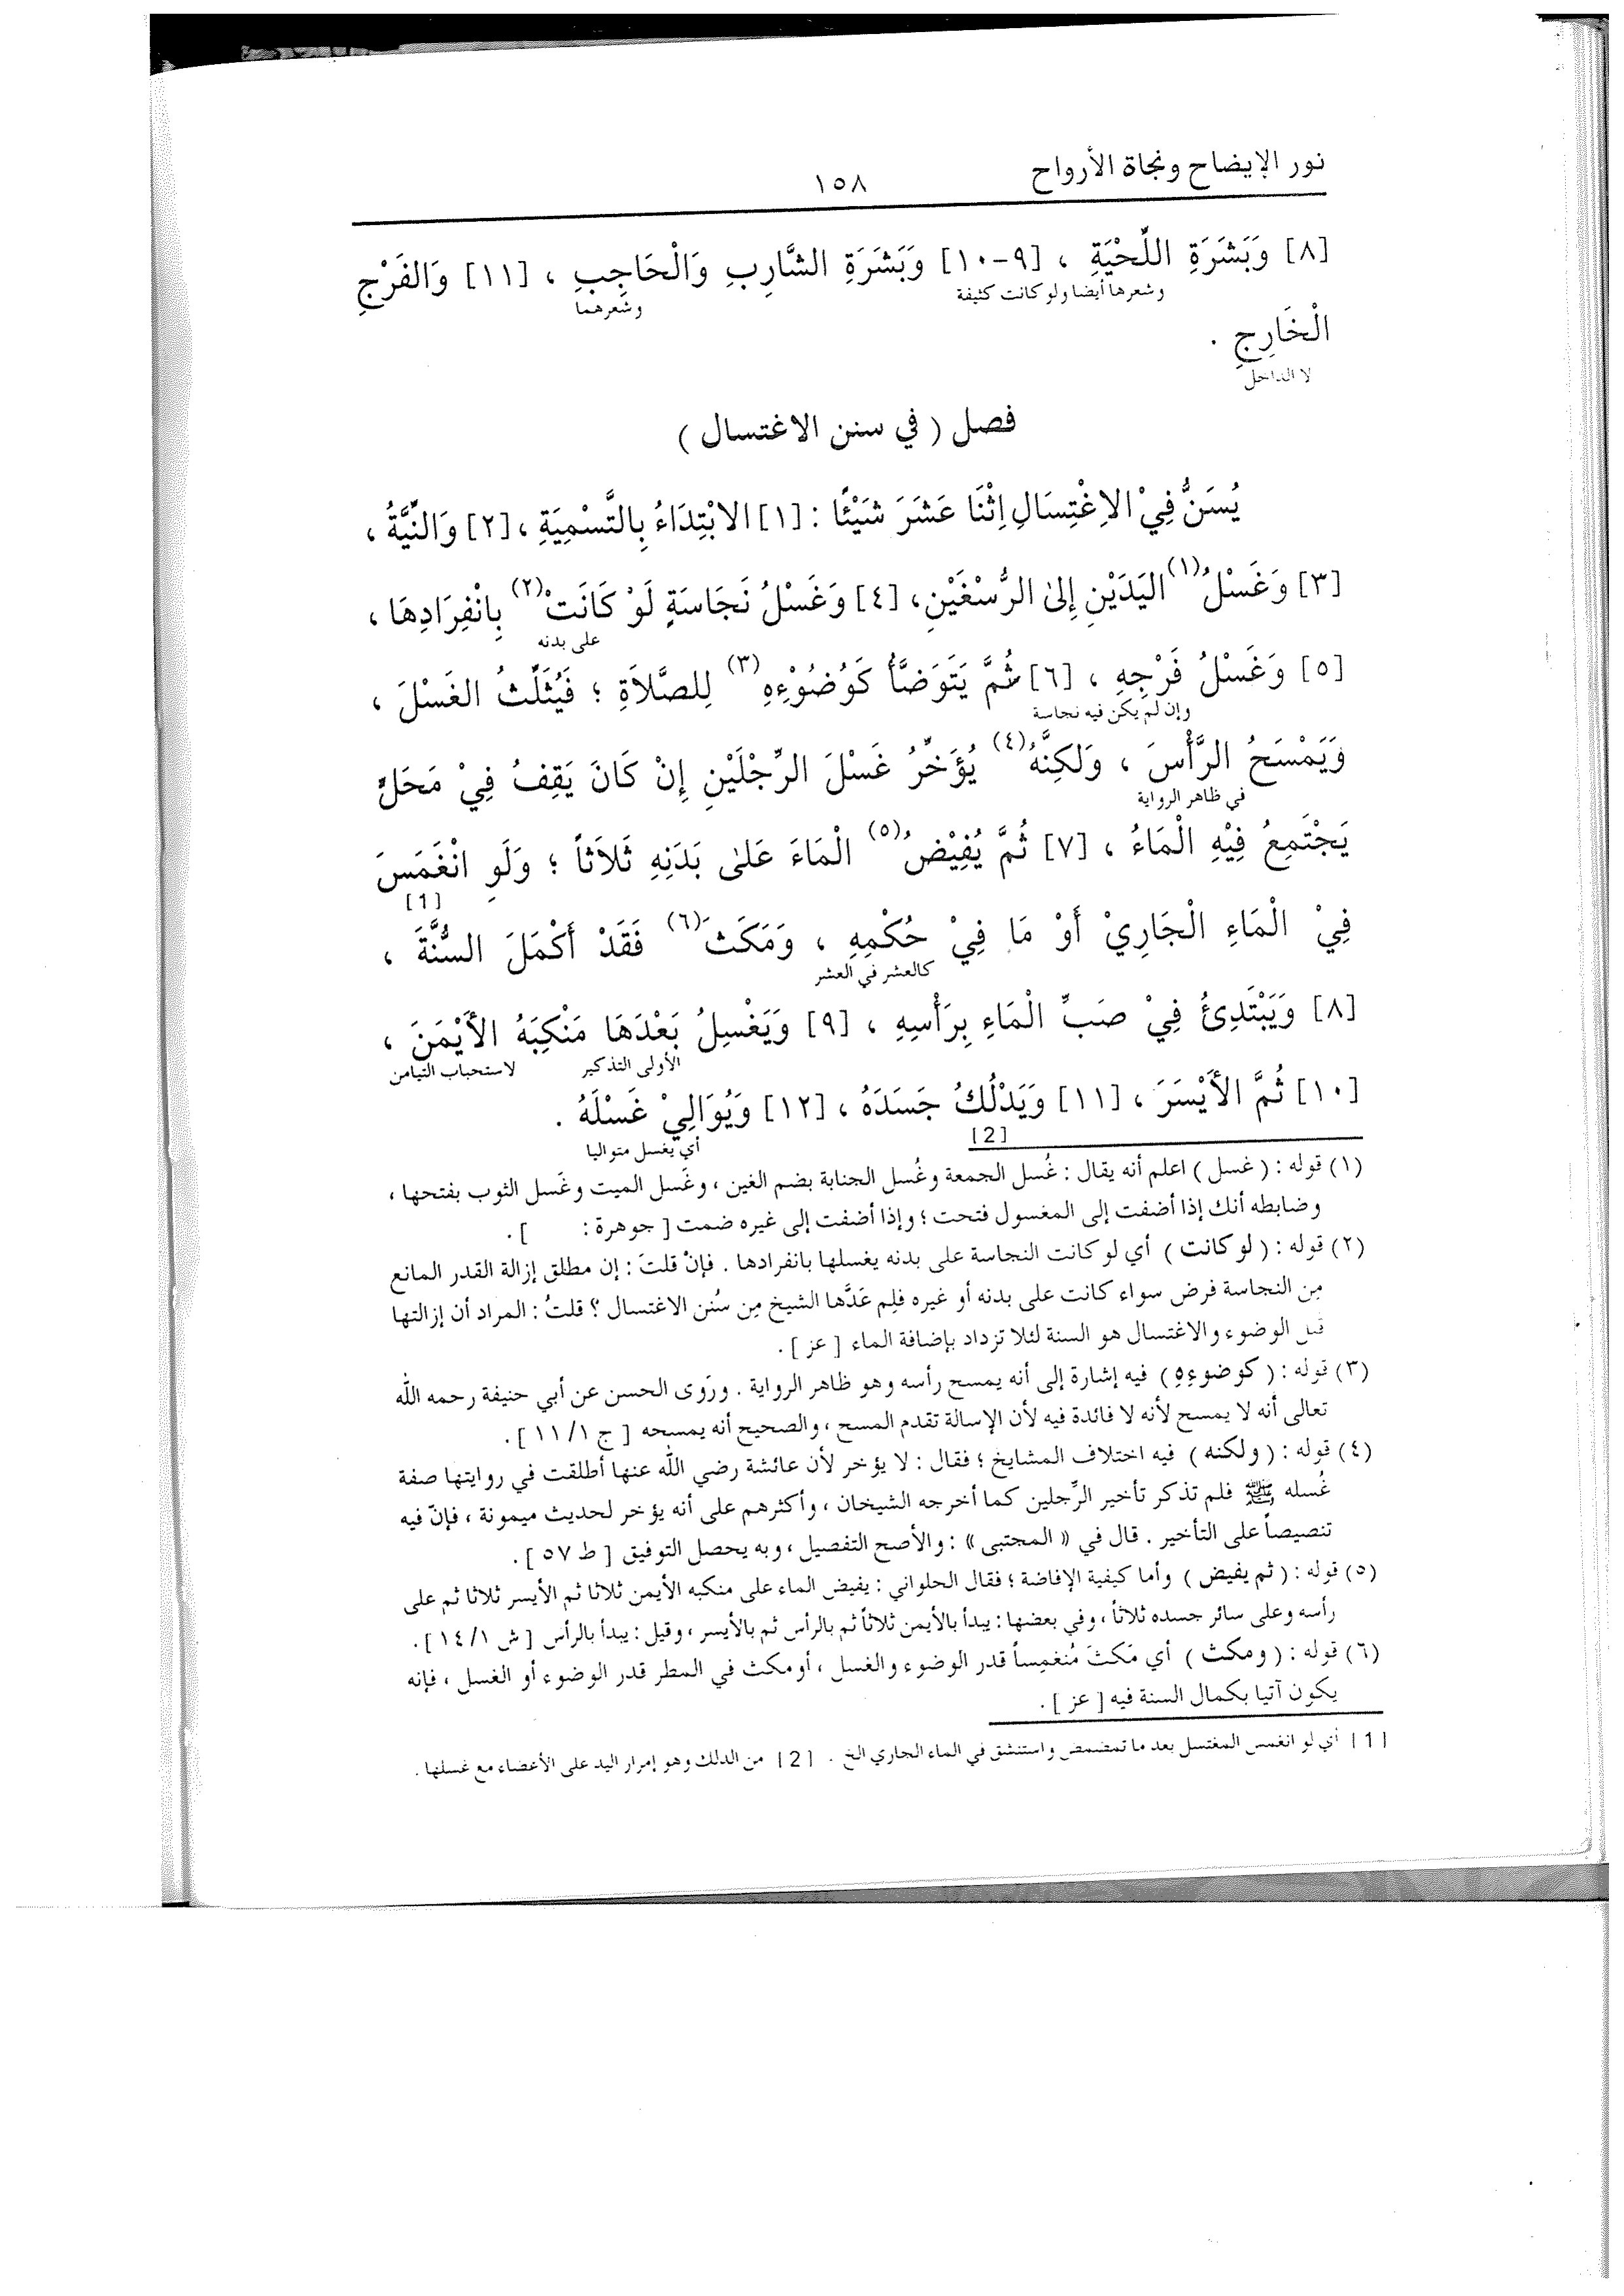 نور الإيضاح ونجاة الأرواح
١٥٨
[٨] وَبَشَرَةِ اللِّحْيَةِ ، [٩-١٠] وَبَشَرَةِ الشَّارِبِ وَالْحَاجِبِ ، [١١] وَالفَرْجِ
وشعرها أيضا ولو كانت كثيفة
وشعرهما
الْخَارِجِ .
لا الداخل
فصل ( في سنن الاغتسال )
يُسَنُّ فِيْ الاِغْتِسَالِ اِثْنَا عَشَرَ شَيْئًا : [١] الابْتِدَاءُ بِالتَّسْمِيَةِ ، [٢] وَالنِّيَّةُ ،
[٣] وَغَسْلُ(١) اليَدَيْنِ إِلىٰ الرُّسْغَيْنِ، [٤] وَغَسْلُ نَجَاسَةٍ لَوْ كَانَتْ(٢) بِانْفِرَادِهَا ،
على بدنه
[٥] وَغَسْلُ فَرْجِهِ ، [٦] ثُمَّ يَتَوَضَّأُ كَوُضُوْءِهِ(٣) لِلصَّلاَةِ ؛ فَيُثَلِّثُ الغَسْلَ ،
وإن لم يكن فيه نجاسة
وَيَمْسَحُ الرَّأْسَ ، وَلكِنَّهُ(٤) يُؤَخِّرُ غَسْلَ الرِّجْلَيْنِ إِنْ كَانَ يَقِفُ فِيْ مَحَلٍّ
في ظاهر الرواية
يَجْتَمِعُ فِيْهِ الْمَاءُ ، [٧] ثُمَّ يُفِيْضُ(٥) الْمَاءَ عَلىٰ بَدَنِهِ ثَلاَثاً ؛ وَلَوِ انْغَمَسَ
[1]
فِيْ الْمَاءِ الْجَارِيْ أَوْ مَا فِيْ حُكْمِهِ ، وَمَكَثَ(٦) فَقَدْ أَكْمَلَ السُّنَّةَ ،
كالعشر في العشر
[٨] وَيَبْتَدِئُ فِيْ صَبِّ الْمَاءِ بِرَأْسِهِ ، [٩] وَيَغْسِلُ بَعْدَهَا مَنْكِبَهُ الأَيْمَنَ ،
الأولى التذكير
لاستحباب التيامن
[١٠] ثُمَّ الأَيْسَرَ ، [١١] وَيَدْلُكُ جَسَدَهُ ، [١٢] وَيُوَالِيْ غَسْلَهُ .
[2]
أي يغسل متواليا
(١) قوله : ( غسل ) اعلم أنه يقال : غُسل الجمعة وغُسل الجنابة بضم الغين ، وغَسل الميت وغَسل الثوب بفتحها ،
وضابطه أنك إذا أضفت إلى المغسول فتحت ؛ وإذا أضفت إلى غيره ضمت [ جوهرة : ] .
(٢) قوله : ( لو كانت ) أي لو كانت النجاسة على بدنه يغسلها بانفرادها . فإنْ قلتَ : إن مطلق إزالة القدر المانع
مِن النجاسة فرض سواء كانت على بدنه أو غيره فلِم عَدَّها الشيخ مِن سُنن الاغتسال ؟ قلتُ : المراد أن إزالتها
قبل الوضوء والاغتسال هو السنة لئلا تزداد بإضافة الماء [ عز ] .
(٣) قوله : ( كوضوءِهِ ) فيه إشارة إلى أنه يمسح رأسه وهو ظاهر الرواية . وروَى الحسن عن أبي حنيفة رحمه الله
تعالى أنه لا يمسح لأنه لا فائدة فيه لأن الإسالة تقدم المسح ، والصحيح أنه يمسحه [ ج ١/ ١١ ] .
(٤) قوله : ( ولكنه ) فيه اختلاف المشايخ ؛ فقال : لا يؤخر لأن عائشة رضي الله عنها أطلقت في روايتها صفة
غُسله ﷺ فلم تذكر تأخير الرِّجلين كما أخرجه الشيخان ، وأكثرهم على أنه يؤخر لحديث ميمونة ، فإنّ فيه
تنصيصاً على التأخير . قال في « المجتبى » : والأصح التفصيل ، وبه يحصل التوفيق [ ط ٥٧ ] .
(٥) قوله : ( ثم يفيض ) وأما كيفية الإفاضة ؛ فقال الحلواني : يفيض الماء على منكبه الأيمن ثلاثا ثم الأيسر ثلاثا ثم على
رأسه وعلى سائر جسده ثلاثاً ، وفي بعضها : يبدأ بالأيمن ثلاثاً ثم بالرأس ثم بالأيسر ، وقيل : يبدأ بالرأس [ ش ١/ ١٤ ] .
(٦) قوله : ( ومكث ) أي مَكثَ مُنغمِساً قدر الوضوء والغسل ، أو مكث في المطر قدر الوضوء أو الغسل ، فإنه
يكون آتيا بكمال السنة فيه [ عز ] .
[1] أي لو انغمس المغتسل بعد ما تمضمض واستنشق في الماء الجاري الخ . [2] من الدلك وهو إمرار اليد على الأعضاء مع غسلها .